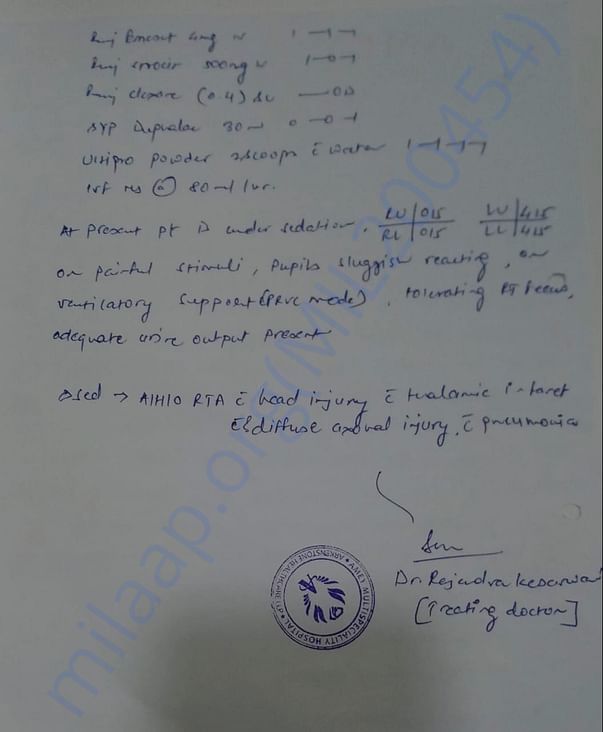 Inj Emeset 4mg IV 1-1-1
Inj 500mg IV 1-0-1
Inj clexane (0.4) SC
SYP Duphalac 30ml 0-0-1
powder 2scoops c̄ water 1-1-1-1
IVF NS @ 80ml/hr.
At present pt is under sedation, RU|015 LU|415
RL|015 LL|415
on painful stimuli, pupils sluggish reacting, on
ventilatory support (PRVC mode), tolerating RT feeds,
adequate urine output present
→ A/H/O RTA c̄ head injury c̄ thalamic infarct
c̄ diffuse axonal injury, c̄ pneumonia
Dr. Rajendra Kesarwani
[Treating doctor]
AMEY MULTISPECIALITY HOSPITAL
ARKENSTONE HEALTHCARE LLP
milaap.org(MIL200454)